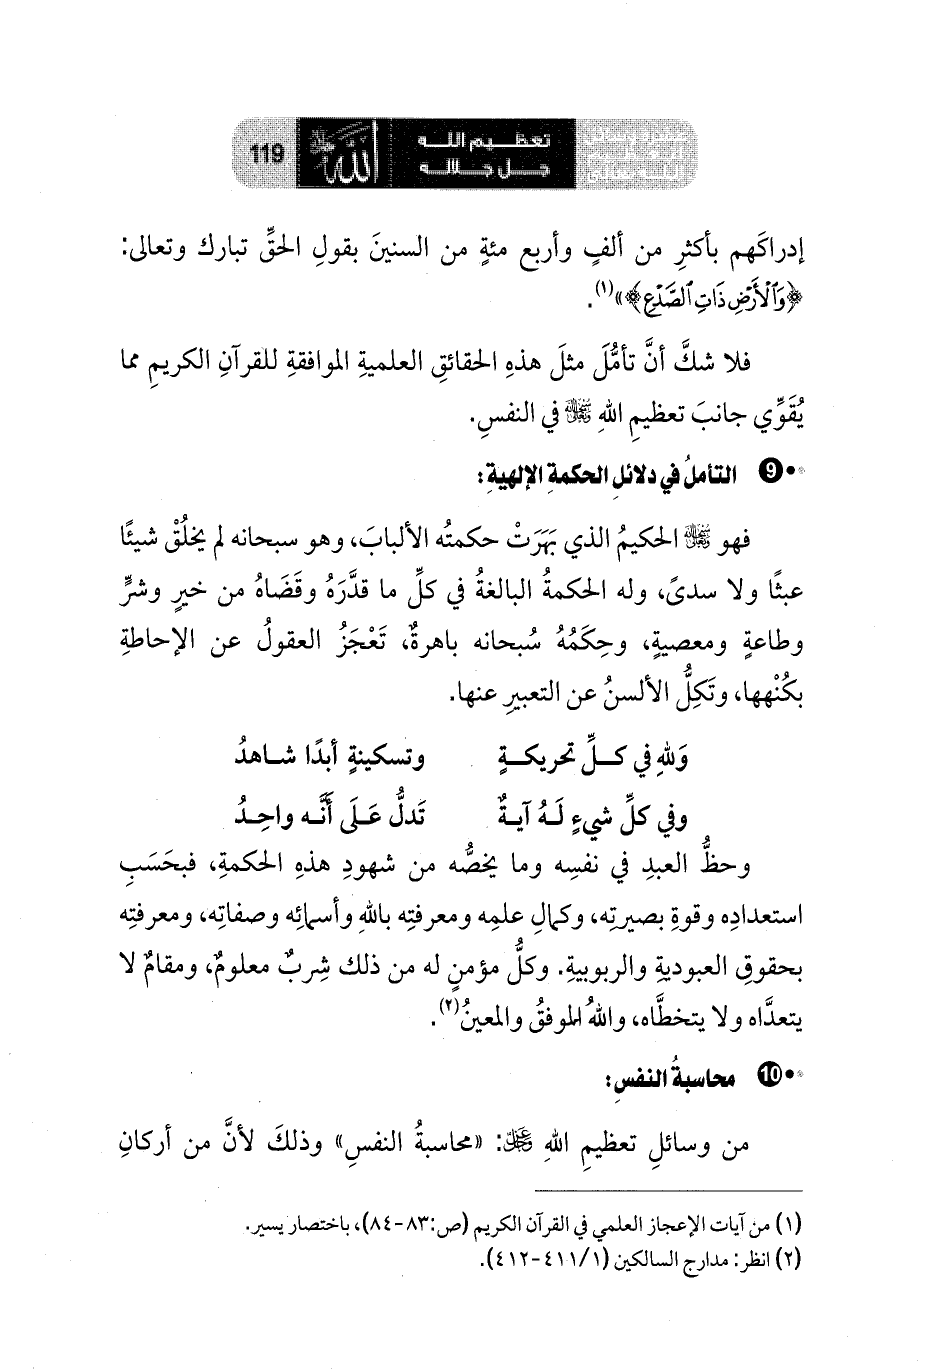 119
تعظيم الله
جل جلاله
إدراكَهم بأكثرِ من ألفٍ وأربع مئةٍ من السنينَ بقولِ الحقِّ تبارك وتعالى:
﴿وَٱلۡأَرۡضِ ذَاتِ ٱلصَّدۡعِ﴾»(١).
فلا شكَّ أنَّ تأمُّلَ مثلَ هذهِ الحقائقِ العلميةِ الموافقةِ للقرآنِ الكريمِ مما
يُقَوِّي جانبَ تعظيمِ اللهِ في النفسِ.
9 التأملُ في دلائلِ الحكمةِ الإلهيةِ:
فهو الحكيمُ الذي بَهَرَتْ حكمتُه الألبابَ، وهو سبحانه لم يخلُقْ شيئًا
عبثًا ولا سدىً، وله الحكمةُ البالغةُ في كلِّ ما قدَّرَهُ وقَضَاهُ من خيرٍ وشرٍّ
وطاعةٍ ومعصيةٍ، وحِكَمُهُ سُبحانه باهرةٌ، تَعْجَزُ العقولُ عن الإحاطةِ
بكُنْهها، وتَكِلُّ الألسنُ عن التعبيرِ عنها.
وَللهِ في كــلِّ تحريكــةٍ وتسكينةٍ أبدًا شـاهدُ
وفي كلِّ شيءٍ لَـهُ آيـةٌ تَدلُّ عَلَى أَنَّـه واحِـدُ
وحظُّ العبدِ في نفسِه وما يخصُّه من شهودِ هذهِ الحكمةِ، فبحَسَبِ
استعدادِه وقوةِ بصيرتِه، وكمالِ علمِه ومعرفتِه باللهِ وأسمائِه وصفاتِه، ومعرفتِه
بحقوقِ العبوديةِ والربوبيةِ. وكلُّ مؤمنٍ له من ذلك شِربٌ معلومٌ، ومقامٌ لا
يتعدَّاه ولا يتخطَّاه، واللهُ الموفقُ والمعينُ(٢).
10 محاسبةُ النفسِ:
من وسائلِ تعظيمِ اللهِ ﷿: «محاسبةُ النفسِ» وذلكَ لأنَّ من أركانِ
(١) من آيات الإعجاز العلمي في القرآن الكريم (ص:٨٣-٨٤)، باختصار يسير.
(٢) انظر: مدارج السالكين (٤١١/١-٤١٢).